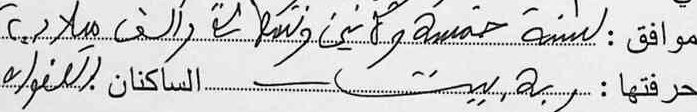 موافق : لسنة خمسة و ثمانين وتسعمائة وألف ميلادية
حرفتها : ربة بيت الساكنان ب